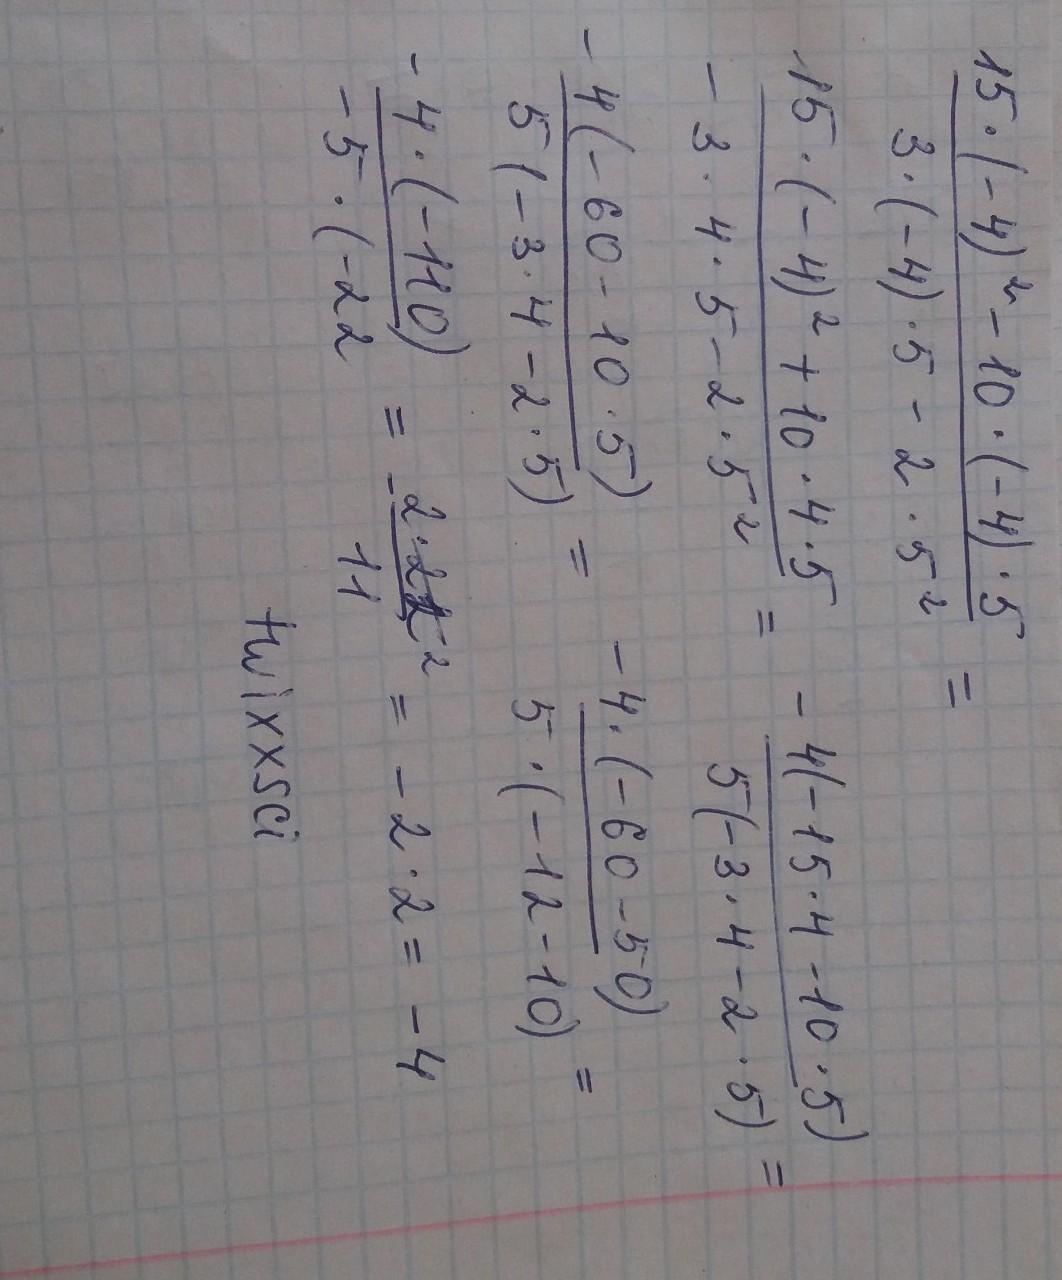 15·(-4)² - 10·(-4)·5
3·(-4)·5 - 2·5² =
15·(-4)² + 10·4·5
- 3·4·5 - 2·5² =
- 4(-15·4 - 10·5)
5(-3·4 - 2·5) =
- 4(-60 - 10·5)
5(-3·4 - 2·5) =
- 4·(-60 - 50)
5·(-12 - 10) =
- 4·(-110)
- 5·(-22
= - 2·22
11
= - 2·2 = - 4
twixxsci